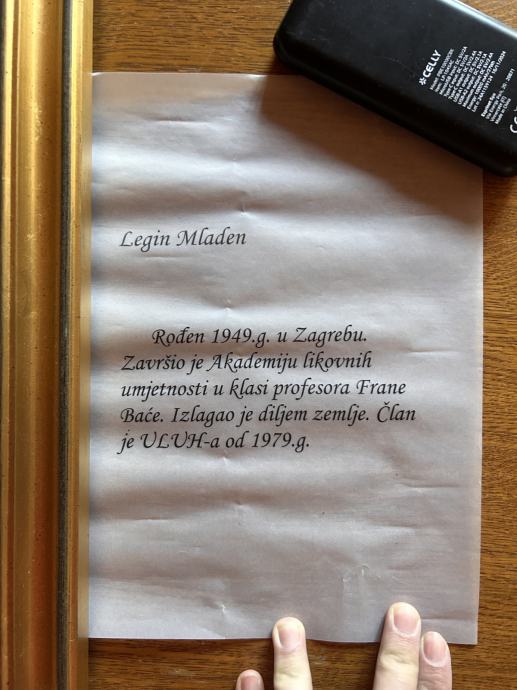 CELLY
Legin Mladen
Rođen 1949.g. u Zagrebu.
Završio je Akademiju likovnih
umjetnosti u klasi profesora Frane
Baće. Izlagao je diljem zemlje. Član
je ULUH-a od 1979.g.